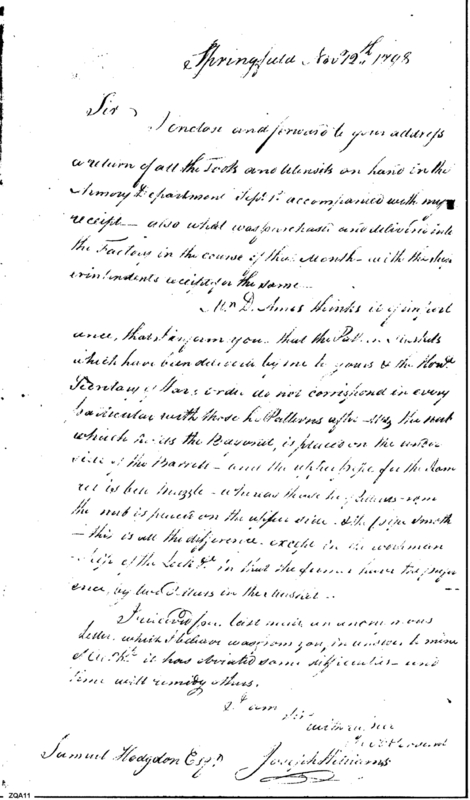 Springfield Nov 12th 1798
Sir
I enclose and forward to your address
a return of all the Tools and Utensils on hand in the
Armory Department Sept. 1st accompanied with my
receipt — also what was purchased and delivered into
the Factory in the course of that Month — with the Sup
erintendents receipt for the same —
Mr D. Ames thinks it of import
ance, that I inform you that the Pattern Muskets
which have been delivered by me to yours & the Honbl
Secretary of War's order do not correspond in every
particular with those he Patterns after — the nub
which holds the Bayonet, is placed on the under
side of the Barrell — and the upper pipe for the Ram
rod is bell muzzle — whereas those he
the nub is placed on the upper side & the pipe smooth
— this is all the difference except in the workman
ship of the Lock &c in that the former have the prefer
ence, by two Dollars in the Musket —
I received last mail an anonymous
letter which I believe was from you, in answer to mine
it has obviated some difficulties — and
time will remidy others.
I am
Sir
with esteem
Samuel Hodgdon Esqr Joseph Williams
ZQA11